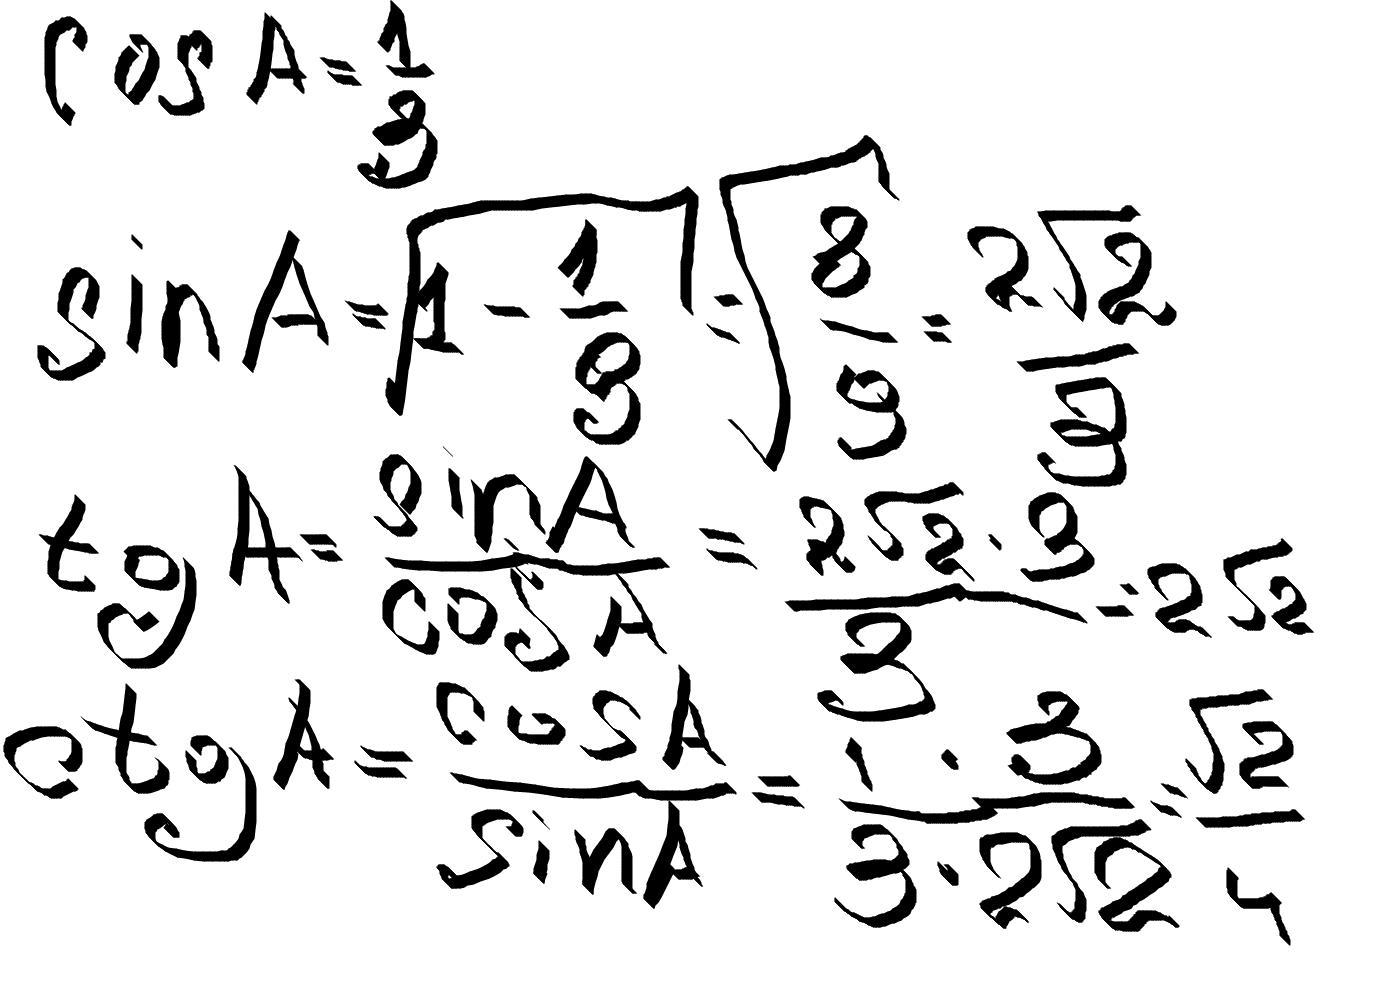 cos A = 1/3
sin A = √(1 - 1/9) = √(8/9) = 2√2/3
tg A = sin A/cos A = 2√2 · 3/3 = 2√2
ctg A = cos A/sin A = 1 · 3/3 · 2√2 = √2/4